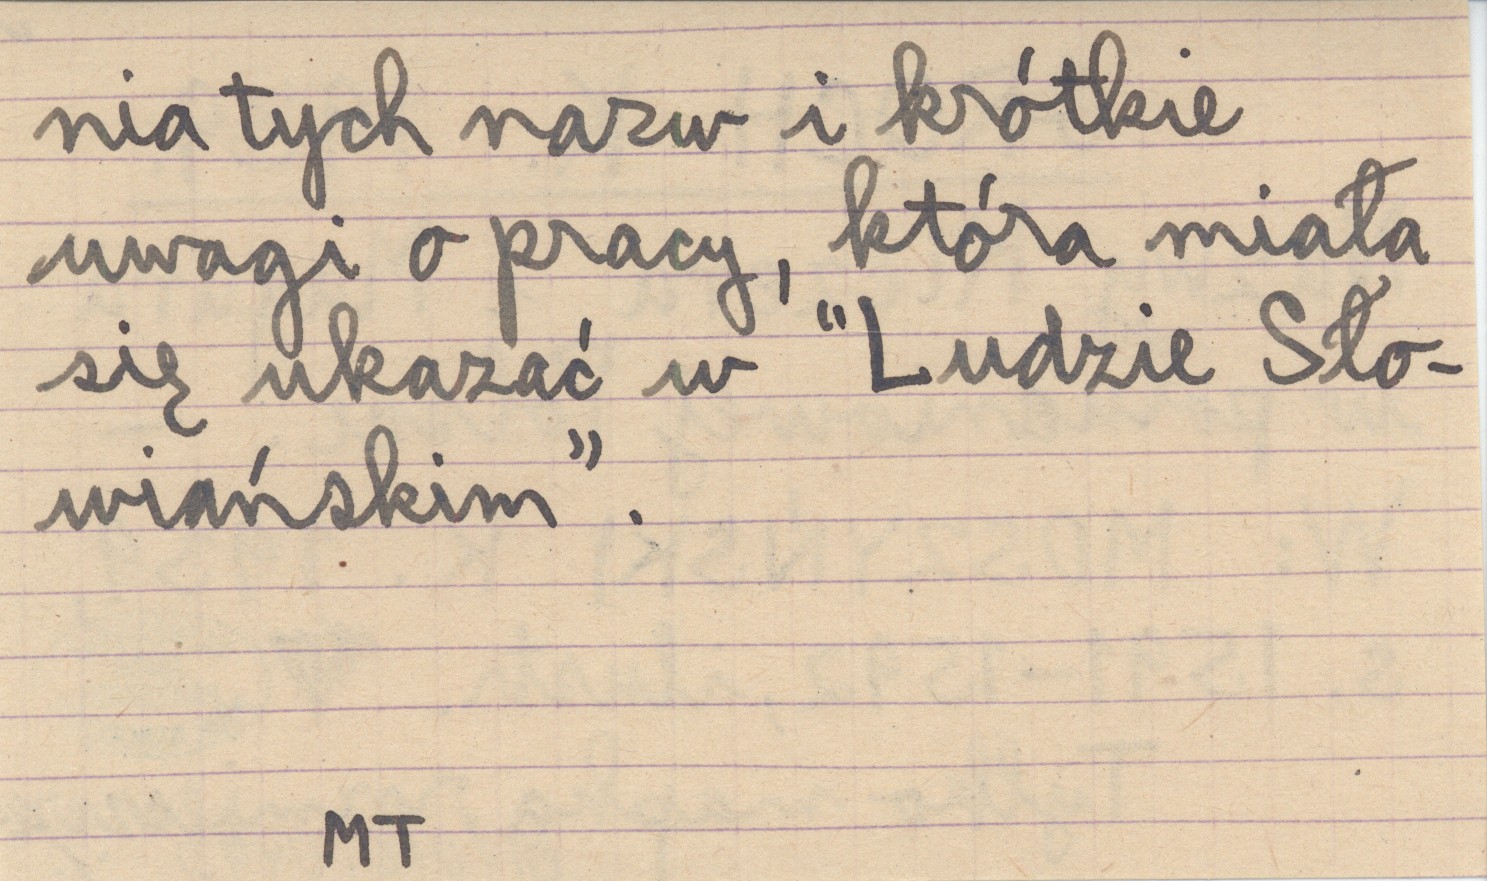 nia tych nazw i krótkie
uwagi o pracy, która miała
się ukazać w "Ludzie Sło-
wiańskim".
MT